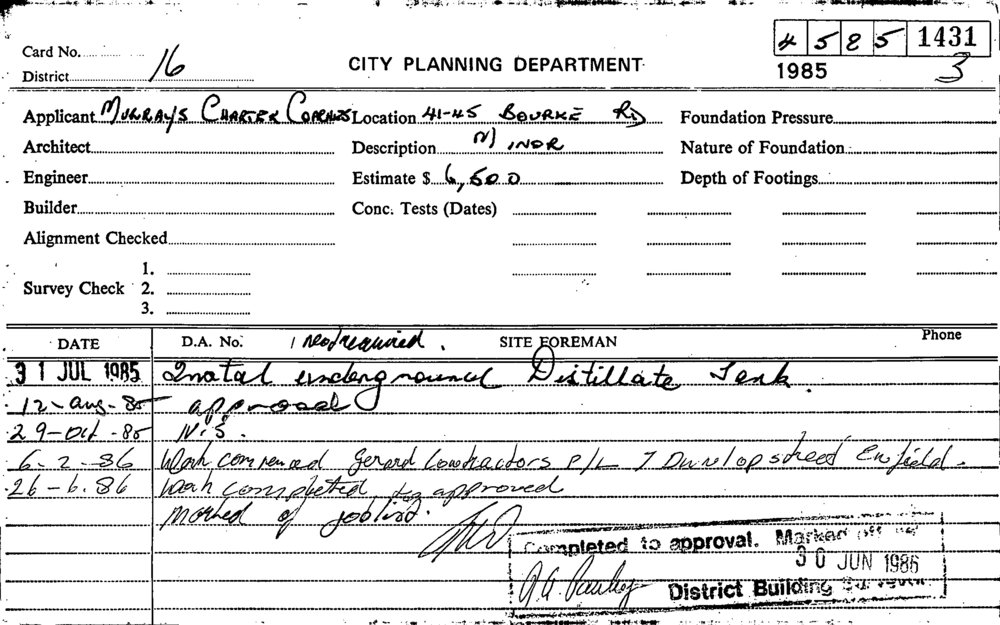 4 5 8 5 1431
Card No.
District 16
CITY PLANNING DEPARTMENT
1985 3
Applicant MURRAYS CHARTER COACHES Location 41-45 BOURKE RD Foundation Pressure
Architect Description INDR Nature of Foundation
Engineer Estimate $ 6,500 Depth of Footings
Builder Conc. Tests (Dates)
Alignment Checked
1.
Survey Check 2.
3.
DATE D.A. No. not required. SITE FOREMAN Phone
31 JUL 1985 Instal underground Distillate Tank.
12-aug-85 approval
29-Oct-85 N.S.
6-2-86 Work commenced Gerard Contractors P/L 7 Dunlop street Enfield.
26-6.86 Work completed to approved
Marked of joblist.
Completed to approval. Marked off
30 JUN 1986
District Building Surveyor